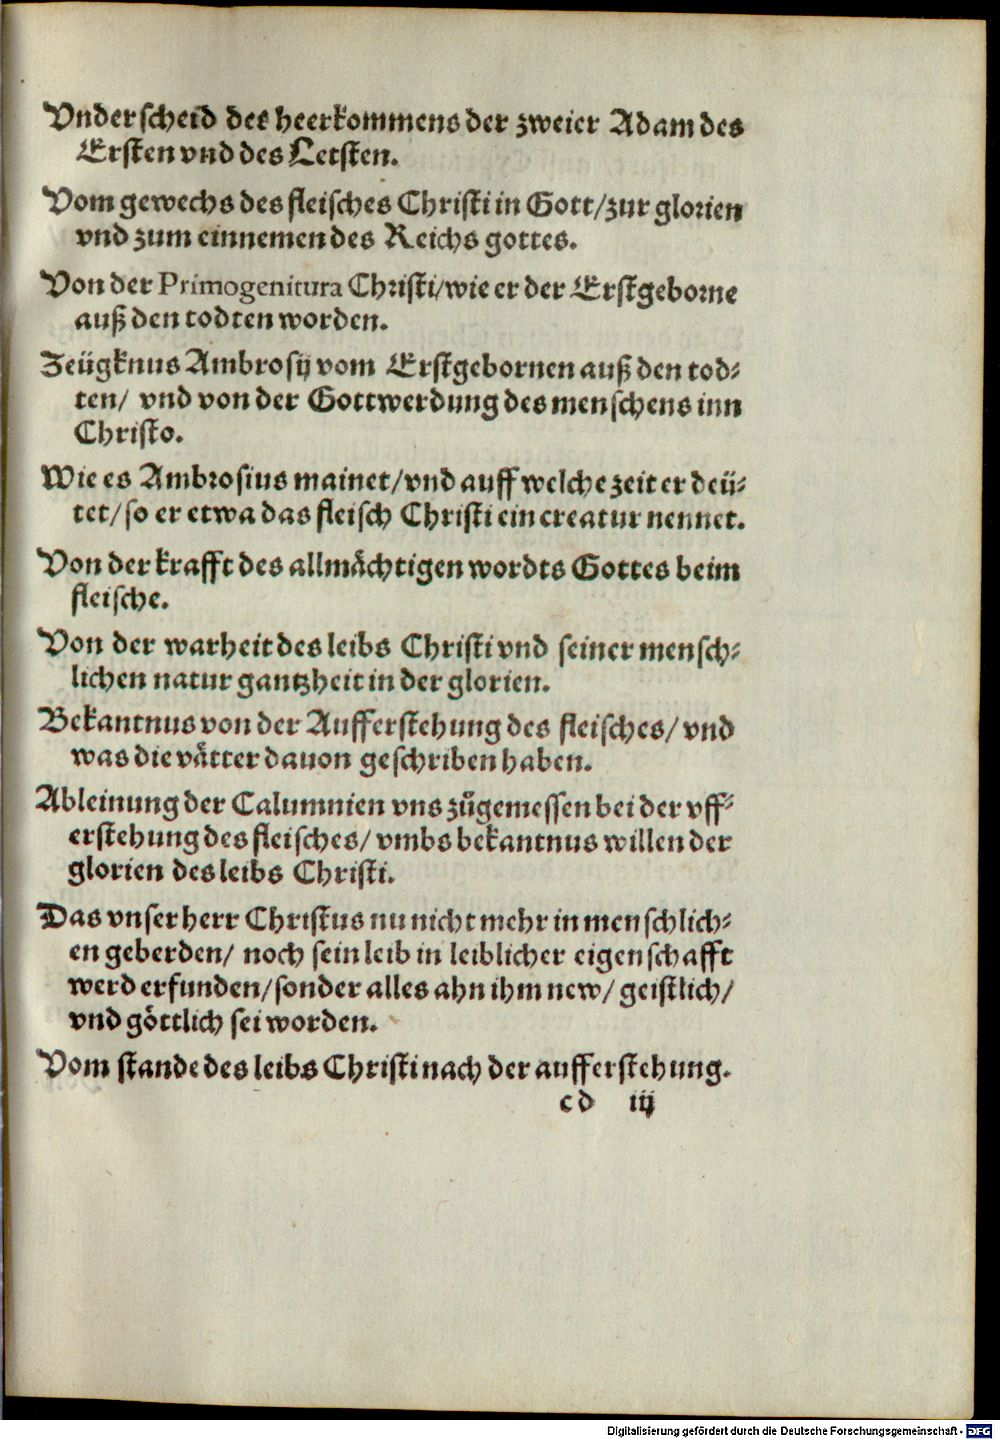 Vnderscheid des heerkommens der zweier Adam des
Ersten vnd des Letsten.
Vom gewechs des fleisches Christi in Gott/zur glorien
vnd zum einnemen des Reichs gottes.
Von der Primogenitura Christi/wie er der Erstgeborne
auß den todten worden.
Zeügknus Ambrosij vom Erstgebornen auß den tod⸗
ten/ vnd von der Gottwerdung des menschens inn
Christo.
Wie es Ambrosius mainet/vnd auff welche zeit er deü⸗
tet/so er etwa das fleisch Christi ein creatur nennet.
Von der krafft des allmächtigen wordts Gottes beim
fleische.
Von der warheit des leibs Christi vnd seiner mensch⸗
lichen natur gantzheit in der glorien.
Bekantnus von der Aufferstehung des fleisches/ vnd
was die vätter dauon geschriben haben.
Ableinung der Calumnien vns zůgemessen bei der vff⸗
erstehung des fleisches/ vmbs bekantnus willen der
glorien des leibs Christi.
Das vnser herr Christus nu nicht mehr in menschlich⸗
en geberden/ noch sein leib in leiblicher eigenschafft
werd erfunden/sonder alles ahn ihm new/ geistlich/
vnd göttlich sei worden.
Vom stande des leibs Christi nach der aufferstehung.
cd iij
Digitalisierung gefördert durch die Deutsche Forschungsgemeinschaft - DFG